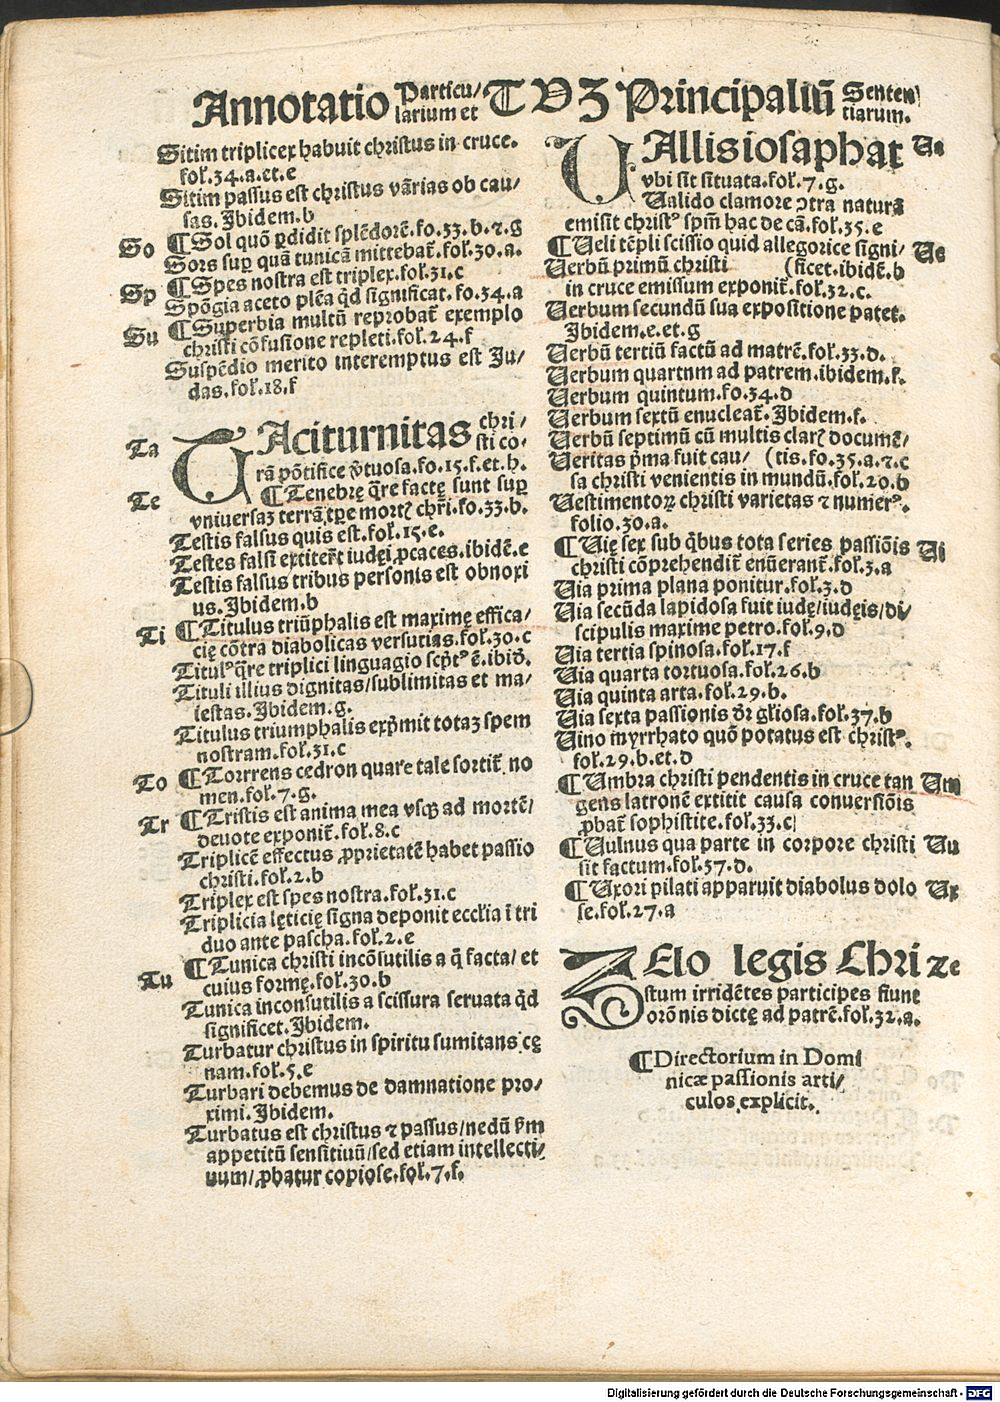 Annotatio Particu/larium et TVZ Principaliū Sententiarum.
Sitim triplicex habuit christus in cruce.
fol.34.a.et.e
Sitim passus est christus varias ob cau/
sas.Ibidem.b
So ¶ Sol quō ꝑdidit splēdorē.fo.33.b.⁊.g
Sors suꝑ quā tunicā mittebat̄.fol.30.a.
Sp ¶ Spes nostra est triplex.fol.31.c
Spōgia aceto plēa qd̄ significat.fo.34.a
Su ¶ Superbia multū reprobat̄ exemplo
christi cōfusione repleti.fol.24.f
Suspēdio merito interemptus est Ju/
das.fol.18.f
Ta TAciturnitas chri/
sti co/
rā pōtifice v̄tuosa.fo.15.f.et.h.
Te ¶ Tenebrę q̄re factę sunt suꝑ
vniuersaꝫ terrā tꝑe mortꝭ chr̄i.fo.33.b.
Testis falsus quis est.fol.15.e.
Testes falsi extiter̄t iudęi ꝓcaces.ibidē.e
Testis falsus tribus personis est obnoxi
us.Ibidem.b
Ti ¶ Titulus triūphalis est maximę effica/
cię cōtra diabolicas versutias.fol.30.c
Titulꝰ q̄re triplici linguagio scp̄tꝰ ē.ibid̄.
Tituli illius dignitas/sublimitas et ma/
iestas.Ibidem.g.
Titulus triumphalis exp̄mit totaꝫ spem
nostram.fol.31.c
To ¶ Torrrens cedron quare tale sortit̄ no
men.fol.7.g.
Tr ¶ Tristis est anima mea vsqꝫ ad mortē/
deuote exponit̄.fol.8.c
Triplicē effectus ꝓprietatē habet passio
christi.fol.2.b
Triplex est spes nostra.fol.31.c
Triplicia lęticię signa deponit eccl̄ia ī tri
duo ante pascha.fol.2.e
Tu ¶ Tunica christi incōsutilis a q̄ facta/ et
cuius formę.fol.30.b
Tunica inconsutilis a scissura seruata qd̄
significet.Ibidem.
Turbatur christus in spiritu sumitans cę
nam.fol.5.e
Turbari debemus de damnatione pro/
ximi.Ibidem.
Turbatus est christus ⁊ passus/nedū s̄m
appetitū sensitiuū/sed etiam intellecti/
uum/ꝓbatur copiose.fol.7.f.
VAllis iosaphat Va
vbi sit situata.fol.7.g.
Valido clamore ↄtra naturā
emisit christꝰ spm̄ hac de cā.fol.35.e
¶ Veli tēpli scissio quid allegorice signi/ Ve
Verbū primū christi (ficet.ibidē.b
in cruce emissum exponit̄.fol.32.c.
Verbum secundū sua expositione patet.
Ibidem.e.et.g
Verbū tertiū factū ad matrē.fol.33.d.
Verbum quartum ad patrem.ibidem.f.
Verbum quintum.fo.34.d
Verbum sextū enucleat̄.Ibidem.f.
Verbū septimū cū multis clarꝭ documē/
Veritas p̄ma fuit cau/ (tis.fo.35.a.⁊.c
sa christi venientis in mundū.fol.20.b
Vestimentoꝝ christi varietas ⁊ numerꝰ.
folio.30.a.
¶ Vię sex sub q̄bus tota series passiōis Vi
christi cōprehendit̄ enūerant̄.fol.3.a
Via prima plana ponitur.fol.3.d
Via secūda lapidosa fuit iudę/iudęis/di/
scipulis maxime petro.fol.9.d
Via tertia spinosa.fol.17.f
Via quarta tortuosa.fol.26.b
Via quinta arta.fol.29.b.
Via sexta passionis dr̄ gl̄iosa.fol.37.b
Vino myrrhato quō potatus est christꝰ.
fol.29.b.et.d
¶ Vmbra christi pendentis in cruce tan Vm
gens latronē extitit causa conuersiōis
ꝓbat̄ sophistite.fol.33.c
¶ Vulnus qua parte in corpore christi Vu
sit factum.fol.57.d.
¶ Vxori pilati apparuit diabolus dolo Vx
se.fol.27.a
ZElo legis Chri Ze
stum irridētes participes fiunt
orōnis dictę ad patrē.fol.32.a.
¶ Directorium in Domi
nicæ passionis arti/
culos explicit.
Digitalisierung gefördert durch die Deutsche Forschungsgemeinschaft - DFG